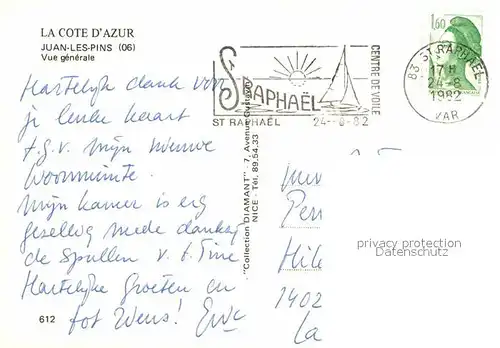 LA COTE D'AZUR
JUAN-LES-PINS (06)
Vue générale
Hartelijk dank voor
je leuke kaart
t.g.v. mijn nieuwe
woonruimte.
Mijn kamer is erg
gezellig mede dankzij
de spullen v. t. Tine
Hartelijke groeten en
tot ziens!
612
"Collection DIAMANT" - 7, Avenue
NICE - Tél. 89.54.33
ST RAPHAËL
CENTRE DE VOILE
ST RAPHAËL 24-8-82
83 ST RAPHAEL
17 H
24-8
1982
VAR
1,60
1402
La
privacy protection
Datenschutz